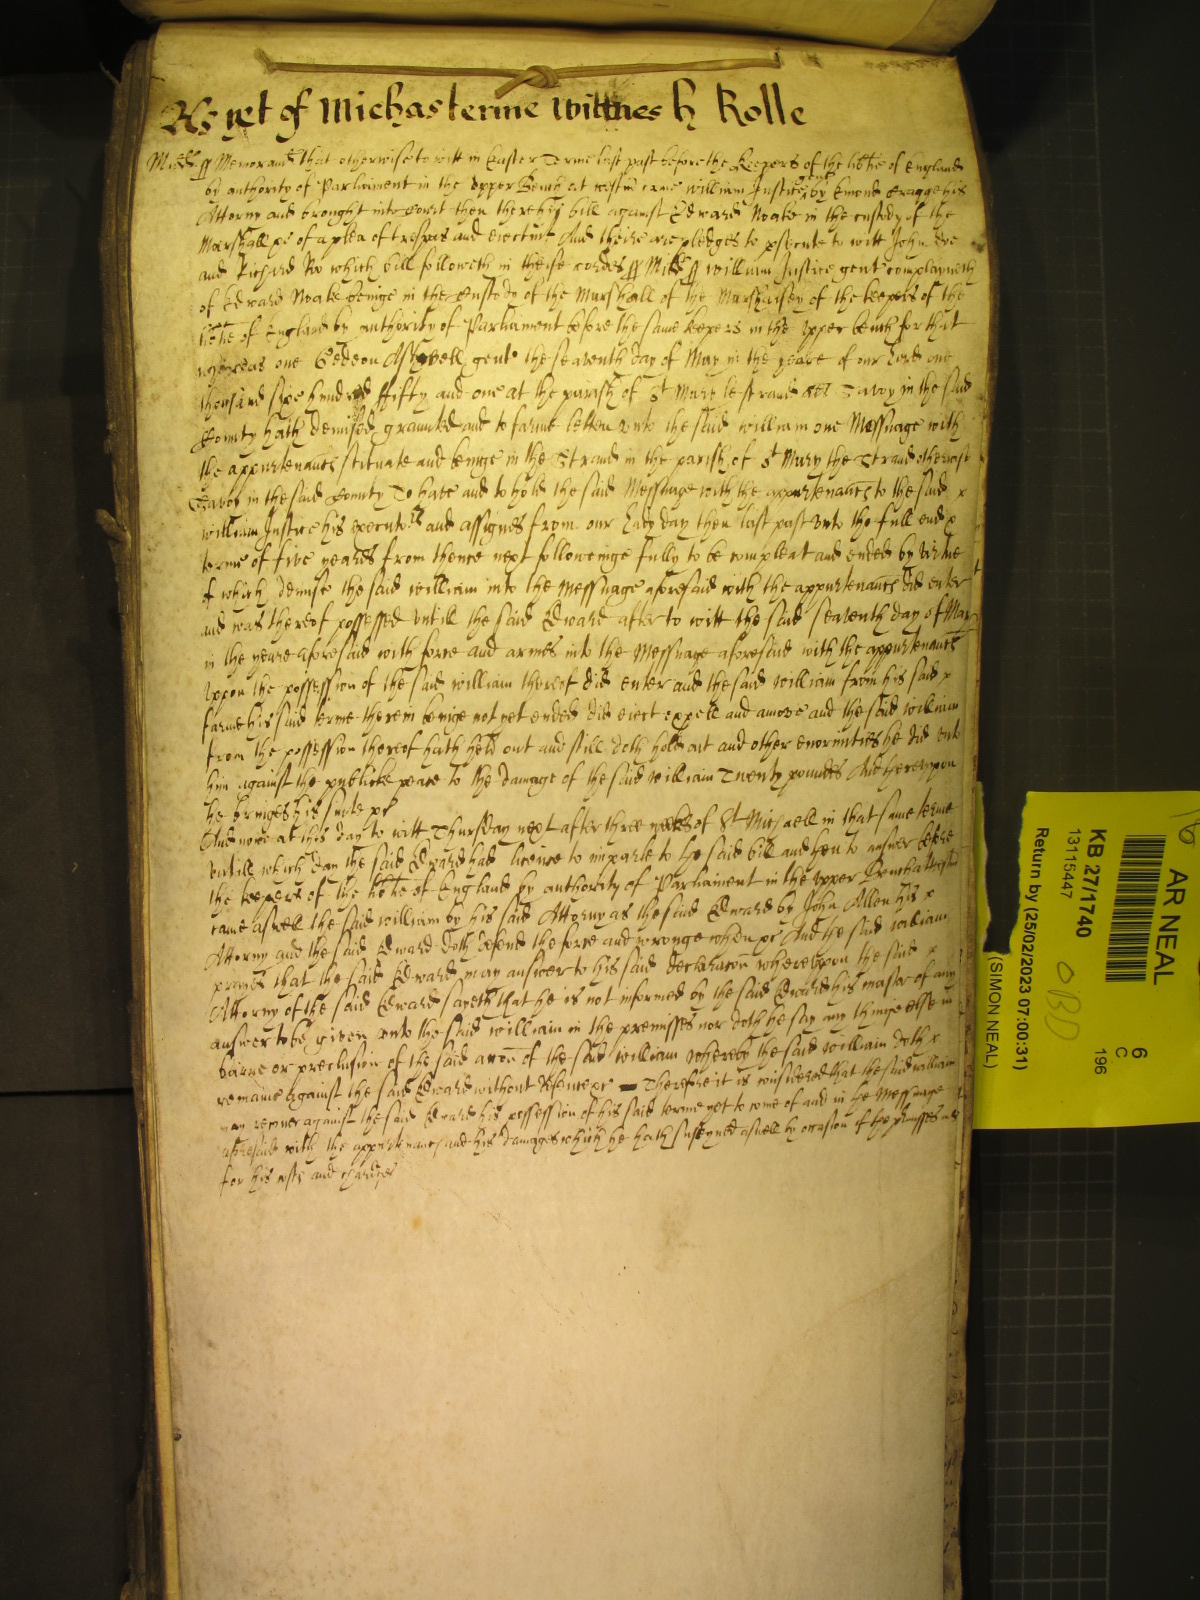 As yet of Michas terme Wittnes h Rolle
Midds ss Memorand that otherwise to witt in Easter Terme last past before the Keepers of the libtie of England
by authority of Parliament in the Upper Bench at westm came william Justice gent by Emond Cragge his
Attorny and brought into Court then there his bill against Edward Noake in the custody of the
Marshall &c of a plea of trespas and eiectmt And there are pledges to psecute to witt John Doe
and Richard Roo which bill followeth in theise wordes ss Midds ss William Justice gent complayneth
of Edward Noake beinge in the Custody of the Marshall of the Marshalsey of the keepers of the
libtie of England by authority of Parliament before the same keepers in the Upper bench for that
whereas one Gedeon Ashwell gent the seaventh day of May in the yeare of our Lord one
thousand sixe hundred fifty and one at the parish of St Mary le strand als Savoy in the said
County hath demised graunted and to farme letten unto the said william one Messuage with
the appurtenances scituate and beinge in the Strand in the parish of St Mary the Strand otherwise
Savoy in the said County To have and to hold the said Messuage with the appurtenances to the said x
william Justice his executors and assignes from our Lady day then last past unto the full end x
terme of five yeares from thence next followeinge fully to be compleat and ended by virtue
of which demise the said william into the Messuage aforesaid with the appurtenances did enter
and was thereof possessed untill the said Edward after to witt the said seaventh day of May
in the yeare aforesaid with force and armes into the Messuage aforesaid with the appurtenances
uppon the possession of the said william thereof did enter and the said william from his said x
farme his said terme therein beinge not yet ended did eiect expell and amove and the said william
from the possession thereof hath held out and still doth hold out and other enormities he did unto
him against the publicke peace to the damage of the said william Twenty poundes And thereuppon
he bringes his suite &c
And nowe at this day to witt Thursday next after three weekes of St Michaell in that same terme
untill which day the said Edward had licence to imparle to the said bill and then to answer before
the keepers of the libtie of England by authority of Parliament in the upper Bench att westm
came aswell the said william by his said Attorny as the said Edward by John Allen his x
Attorny and the said Edward doth defend the force and wronge when &c And the said william
prayes that the said Edward may answer to his said declaracon whereuppon the said x
Attorny of the said Edward sayeth that he is not informed by the said Edward his master of any
answer to be given unto the said william in the premisses nor doth he say any thinge else in
barre or preclusion of the said accon of the said william whereby the said william doth x
remaine against the said Edward without defence &c Therefore it is considered that the said william
may recover against the said Edward his possession of his said terme yet to come of and in the Messuage
aforesaid with the appurtenances and his damages which he hath susteyned aswell by occasion of the pmisses as
for his costs and chardges
AR NEAL
KB 27/1740
13115447
Return by (25/02/2023 07:00:31)
(SIMON NEAL)
6
C
196